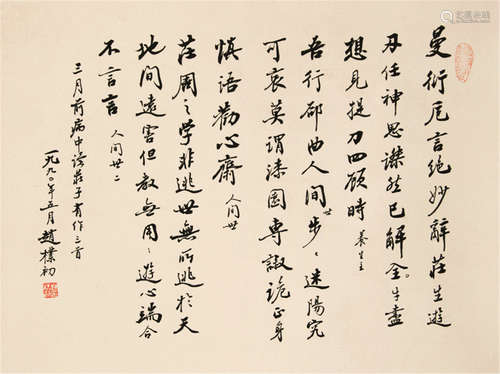 曼衍卮言绝妙辞莊生遊
刃任神思謋然已解全牛盡
想見提刀四顧時 養生主
吾行郤曲人间世步〻迷陽究
可哀莫谓漆園專諔詭正身
慎语勸心齋 人间世
莊周之學非逃世無所逃於天
地間遠害但教無用〻遊心端合
不言言 人间世二
三月前病中读莊子有作三首
一九九〇年五月趙樸初